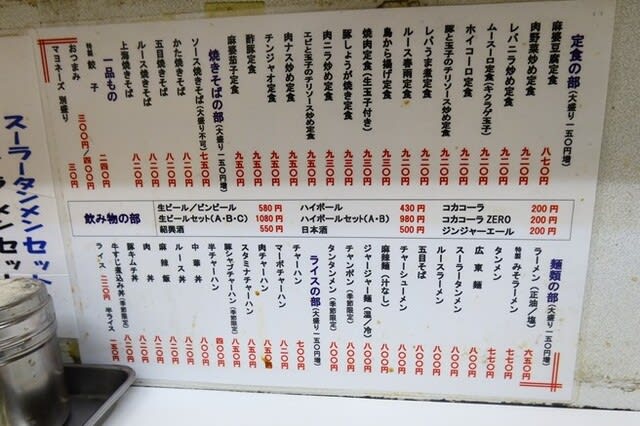 定食の部(大盛り一五〇円増)
麻婆豆腐定食 八七〇円
肉野菜炒め定食 九二〇円
レバニラ炒め定食 九二〇円
ホイコーロ定食 九二〇円
ムースーロ定食(キクラゲ玉子) 九二〇円
豚と玉子のチリソース炒め定食 九二〇円
レバうま煮定食 九二〇円
ルース春雨定食 九三〇円
鳥から揚げ定食 九三〇円
焼肉定食(生玉子付き) 九三〇円
豚しょうが焼き定食 九三〇円
肉ニラ炒め定食 九五〇円
エビと玉子のチリソース炒め定食 九五〇円
肉ナス炒め定食 九五〇円
チンジャオ定食 九五〇円
酢豚定食 九五〇円
麻婆茄子定食 九五〇円
焼きそばの部(大盛り一五〇円増)
ソース焼きそば(大盛り不可) 七五〇円
かた焼きそば 八二〇円
五目焼きそば 八二〇円
ルース焼きそば 八二〇円
上海焼きそば 八二〇円
一品もの
特製 餃子 二四〇円
おつまみ 三〇〇円/四〇〇円
マヨネーズ 別盛り 三〇円
飲み物の部
生ビール/ビンビール 580円
生ビールセット(A・B・C) 1080円
紹興酒 550円
ハイボール 430円
ハイボールセット(A・B) 980円
日本酒 500円
コカコーラ 200円
コカコーラ ZERO 200円
ジンジャーエール 200円
麺類の部(大盛り一五〇円増)
ラーメン(正油/塩) 六五〇円
特製 みそラーメン 七七〇円
タンメン 七七〇円
広東麺 八〇〇円
スーラータンメン 八〇〇円
ルースラーメン 八〇〇円
五目そば 八〇〇円
チャーシューメン 八〇〇円
麻辣麺(汁なし) 八〇〇円
ジャージャー麺(温/冷) 八〇〇円
チャンポン(季節限定) 八〇〇円
タンタンメン(季節限定) 八〇〇円
ライスの部(大盛り一五〇円増)
チャーハン 七〇〇円
マーボチャーハン 八二〇円
肉チャーハン 八五〇円
スタミナチャーハン 八五〇円
豚シャブチャーハン(季節限定) 八五〇円
半チャーハン 四〇〇円
中華丼 八〇〇円
ルース丼 八二〇円
麻辣飯 八二〇円
肉丼 八二〇円
豚キムチ丼 八二〇円
牛すじ煮込み丼 八二〇円
ライス 二二〇円 半ライス 一五〇円
スーラータンメンセット